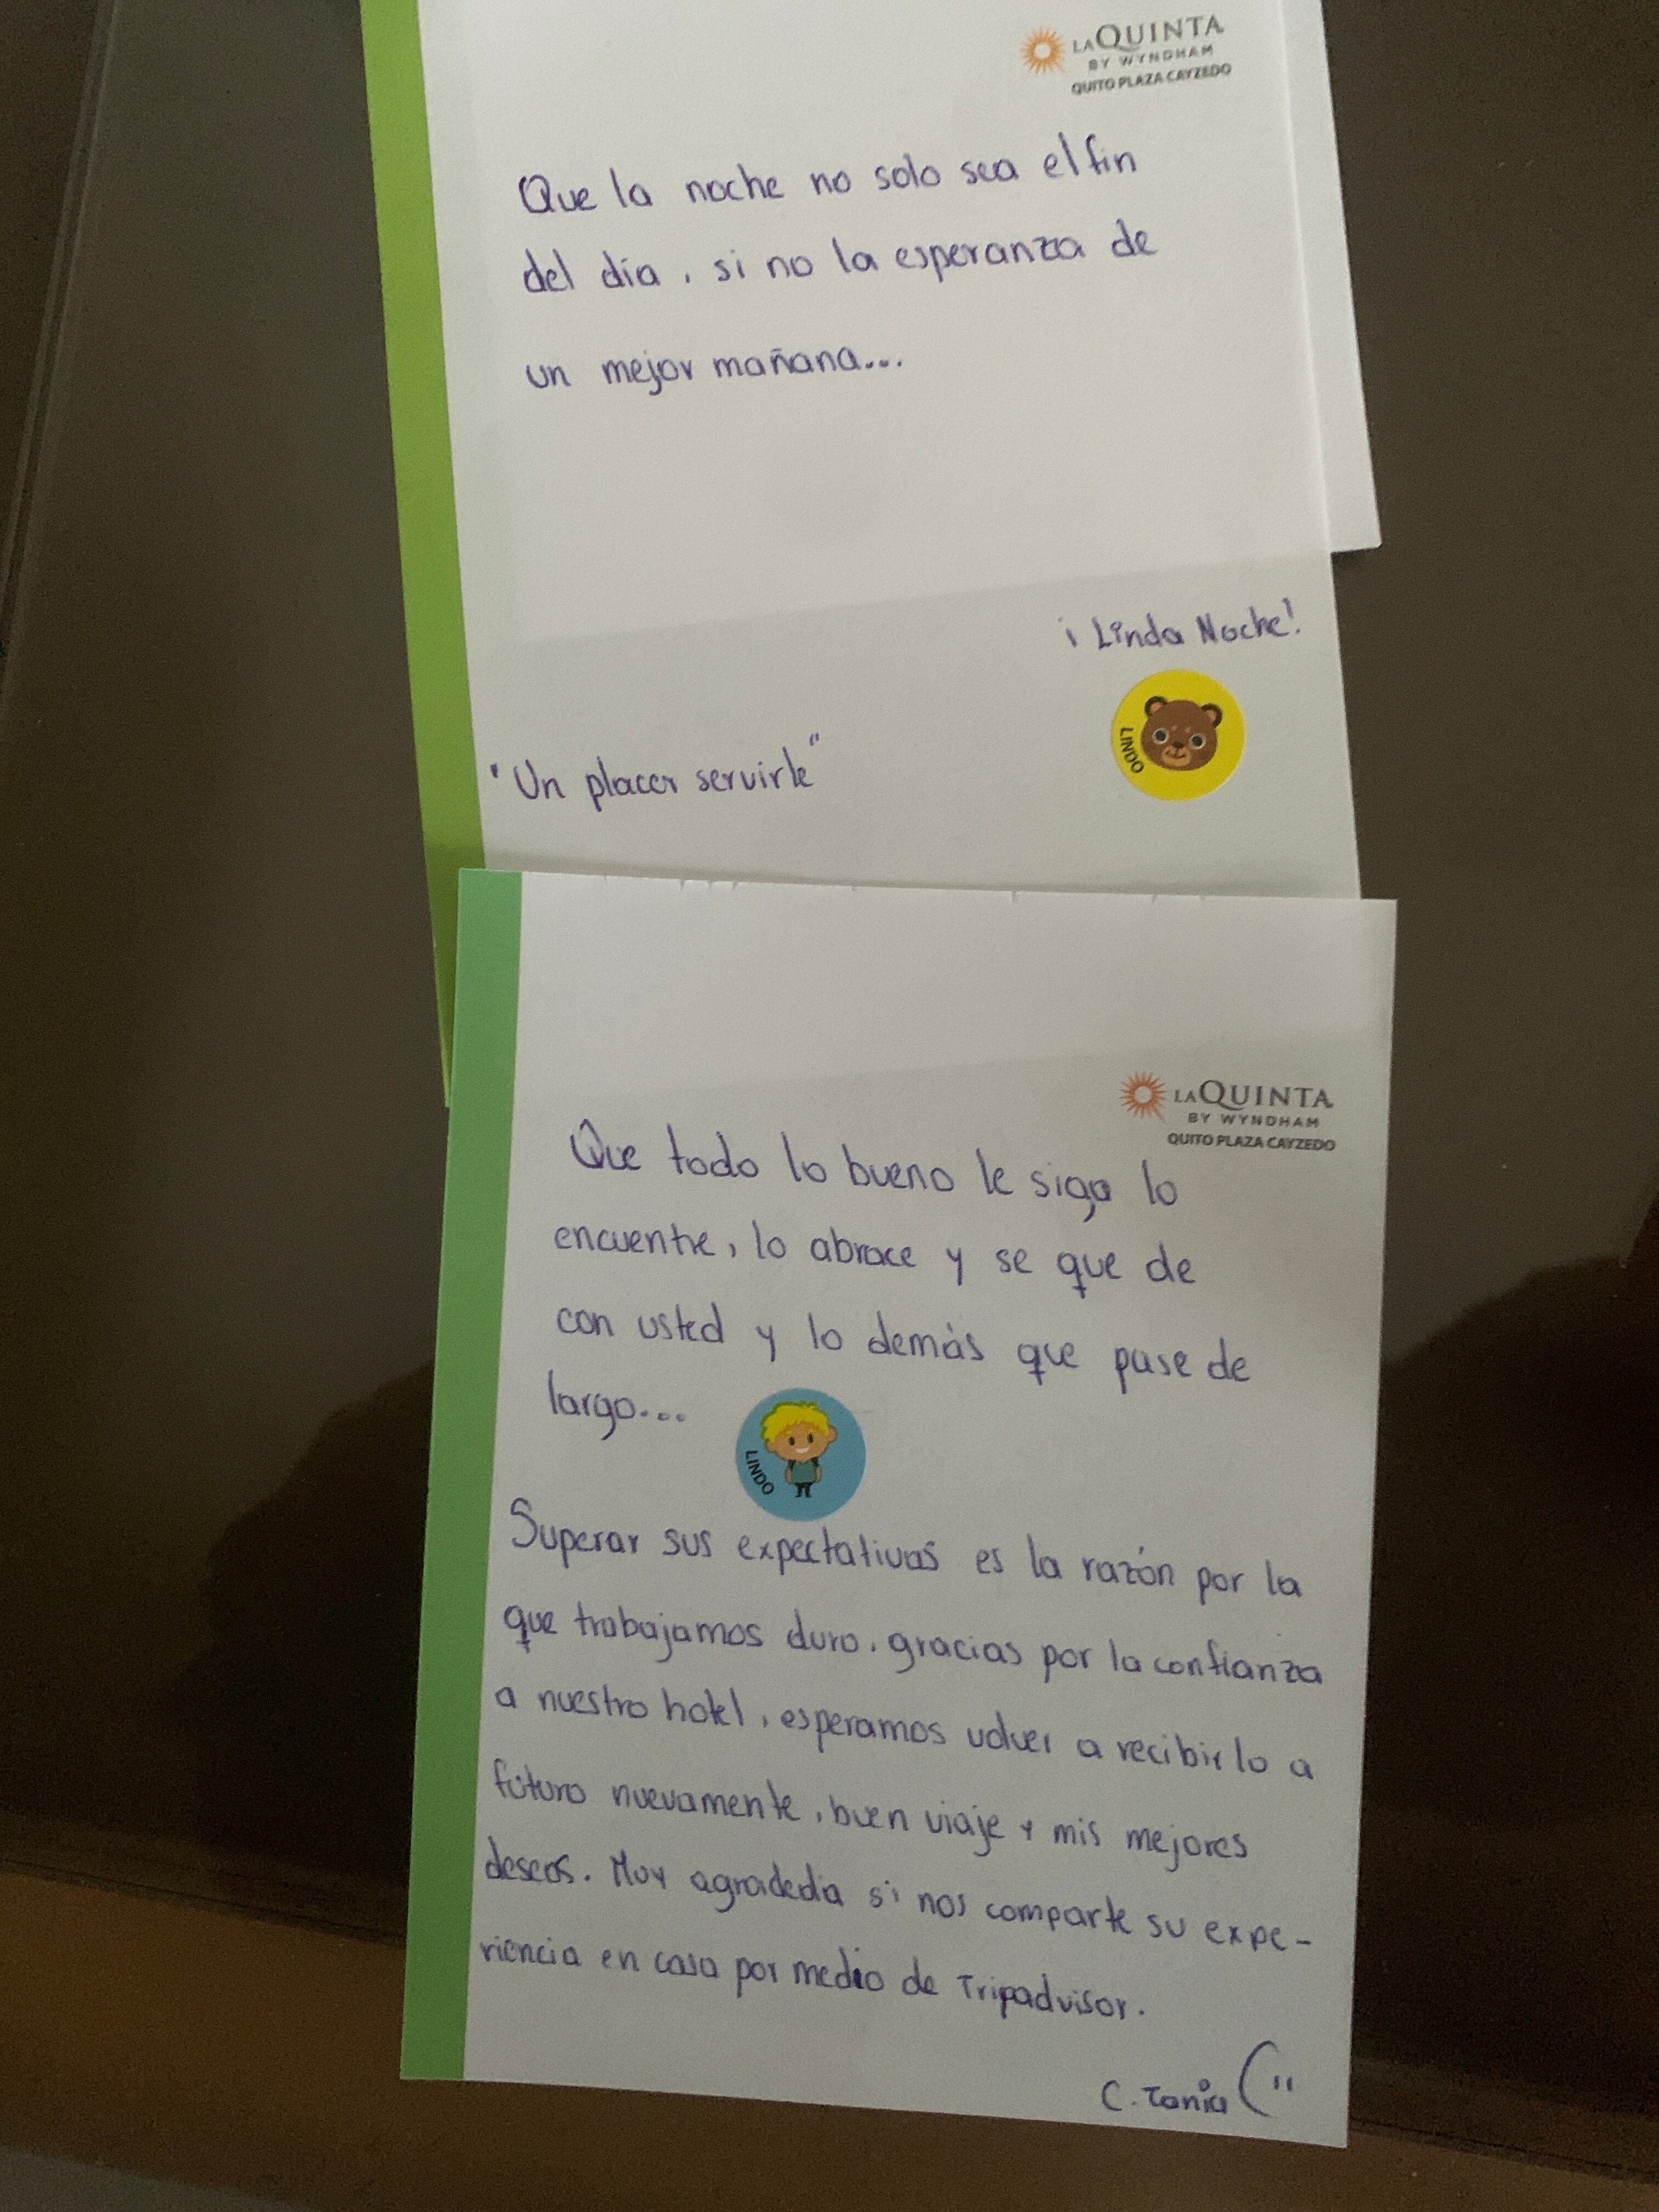 LAQUINTA
BY WYNDHAM
QUITO PLAZA CAYZEDO
Que la noche no solo sea el fin
del día, si no la esperanza de
un mejor mañana...
¡Linda Noche!
LINDO
"Un placer servirle"
LAQUINTA
BY WYNDHAM
QUITO PLAZA CAYZEDO
Que todo lo bueno le siga lo
encuentre, lo abrace y se que de
con usted y lo demás que pase de
largo...
LINDO
Superar sus expectativas es la razón por la
que trabajamos duro. gracias por la confianza
a nuestro hotel, esperamos volver a recibirlo a
futuro nuevamente, buen viaje y mis mejores
deseos. Muy agradedia si nos comparte su expe-
riencia en casa por medio de Tripadvisor.
C. Tania (¨